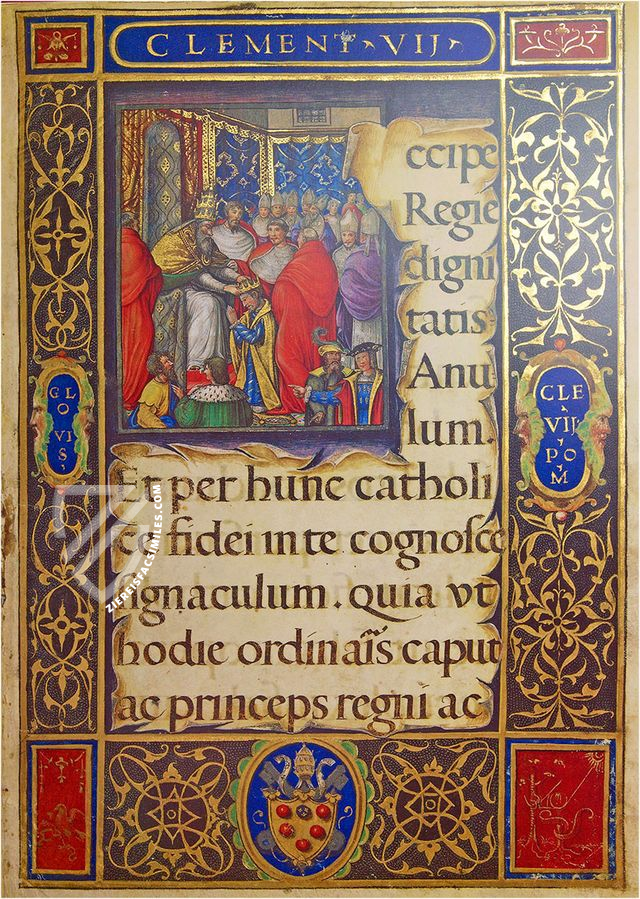 CLEMENT · VIJ ·
ccipe
Regie
digni
tatis
Anu
lum.
Et per hunc catholi
ce fidei in te cognosce
signaculum. quia vt
hodie ordinaris caput
ac princeps regni ac
CLO
VIS
CLE
VIJ
PO
M
ZIEREISFACSIMILES.COM